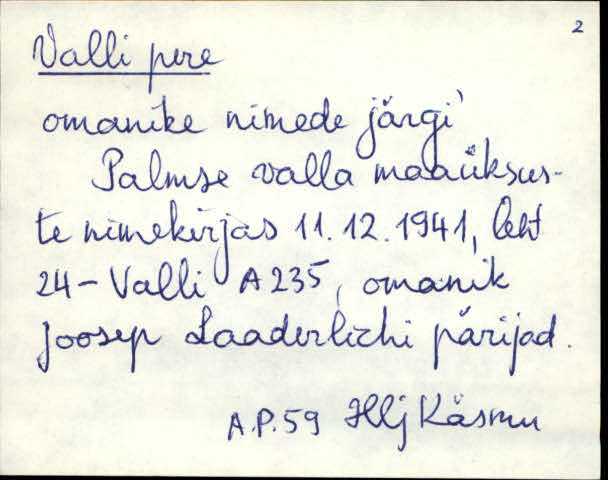 2
Valli pere
omanike nimede järgi
Palmse valla maaüksus-
te nimekirjas 11.12.1941, leht
24 - Valli A 235, omanik
Joosep Laaderlichi pärijad.
A.P.59 Hlj Käsmu